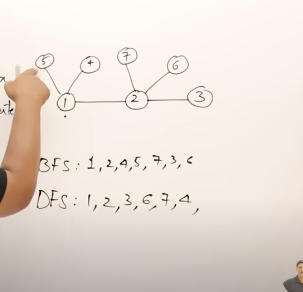 5 4 7 6
1 2 3
BFS: 1, 2, 4, 5, 7, 3, 6
DFS: 1, 2, 3, 6, 7, 4,